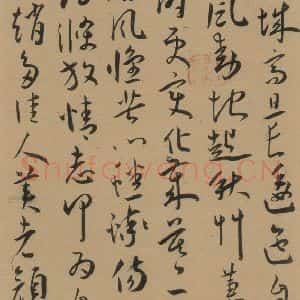 城高且長逶迤自
風動地起秋草萋
時更變化歲暮一
風懷苦心蟋蟀傷
滌放情志何為自
趙多佳人美者顏
Shufawang.CN